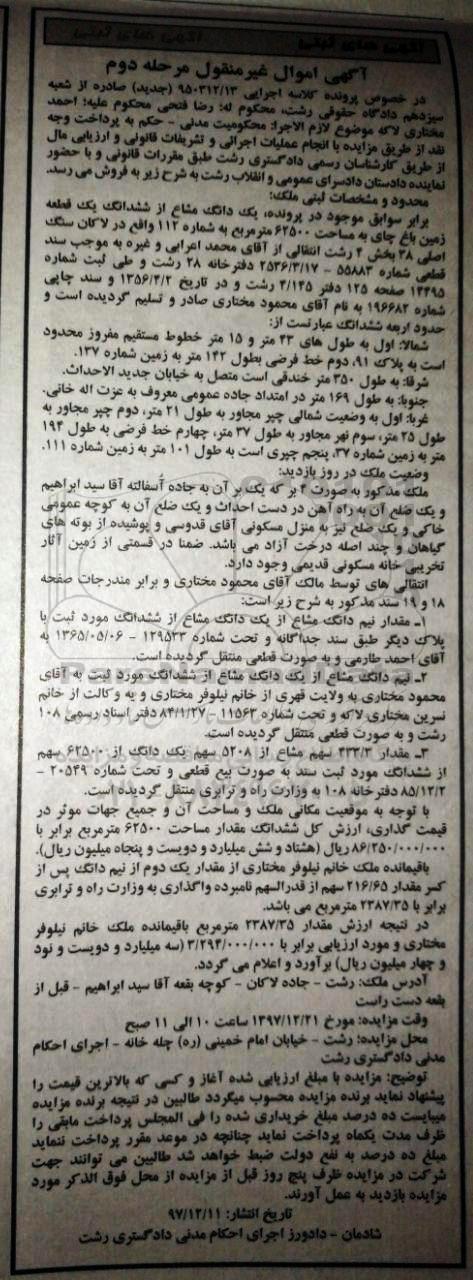 آگهی های ثبتی
آگهی اموال غیرمنقول مرحله دوم
در خصوص پرونده کلاسه اجرایی ۹۵۰۳۱۲/۱۳ (جدید) صادره از شعبه
سیزدهم دادگاه حقوقی رشت، محکوم له: رضا فتحی محکوم علیه: احمد
مختاری لاکه موضوع لازم الاجرا: محکومیت مدنی - حکم به پرداخت وجه
نقد از طریق مزایده با انجام عملیات اجرائی و تشریفات قانونی و ارزیابی مال
از طریق کارشناسان رسمی دادگستری رشت طبق مقررات قانونی و با حضور
نماینده دادستان دادسرای عمومی و انقلاب رشت به شرح زیر به فروش می رسد.
محدود و مشخصات ثبتی ملک:
برابر سوابق موجود در پرونده، یک دانگ مشاع از ششدانگ یک قطعه
زمین باغ چای به مساحت ۶۲۵۰۰ مترمربع به شماره ۱۱۲ واقع در لاکان سنگ
اصلی ۳۸ بخش ۴ رشت انتقالی از آقای محمد اعرابی و غیره به موجب سند
قطعی شماره ۵۵۸۸۳ - ۲۵۳۶/۳/۱۷ دفترخانه ۲۸ رشت و طی ثبت شماره
۱۴۴۹۵ صفحه ۱۲۵ دفتر ۴/۱۴۵ رشت و در تاریخ ۱۳۵۶/۴/۲ و سند چاپی
شماره ۱۹۶۶۸۲ به نام آقای محمود مختاری صادر و تسلیم گردیده است و
حدود اربعه ششدانگ عبارتست از:
شمالا: اول به طول های ۴۳ متر و ۱۵ متر خطوط مستقیم مفروز محدود
است به پلاک ۹۱، دوم خط فرضی بطول ۱۴۲ متر به زمین شماره ۱۳۷.
شرقا: به طول ۳۵۰ متر خندقی است متصل به خیابان جدید الاحداث.
جنوبا: به طول ۱۶۹ متر در امتداد جاده عمومی معروف به عزت اله خانی.
غربا: اول به وضعیت شمالی چپر مجاور به طول ۲۱ متر، دوم چپر مجاور به
طول ۲۵ متر، سوم نهر مجاور به طول ۳۷ متر، چهارم خط فرضی به طول ۱۹۴
متر به زمین شماره ۳۷، پنجم چپری است به طول ۱۰۱ متر به زمین شماره ۱۱۱.
وضعیت ملک در روز بازدید:
ملک مذکور به صورت ۴ بر که یک بر آن به جاده آسفالته آقا سید ابراهیم
و یک ضلع آن به راه آهن در دست احداث و یک ضلع آن به کوچه عمومی
خاکی و یک ضلع نیز به منزل مسکونی آقای قدوسی و پوشیده از بوته های
گیاهان و چند اصله درخت آزاد می باشد. ضمنا در قسمتی از زمین آثار
تخریبی خانه مسکونی قدیمی وجود دارد.
انتقالی های توسط مالک آقای محمود مختاری و برابر مندرجات صفحه
۱۸ و ۱۹ سند مذکور به شرح زیر است:
۱ـ مقدار نیم دانگ مشاع از یک دانگ مشاع از ششدانگ مورد ثبت با
پلاک دیگر طبق سند جداگانه و تحت شماره ۱۲۹۵۳۳ - ۱۳۶۵/۰۵/۰۶ به
آقای احمد طارمی و به صورت قطعی منتقل گردیده است.
۲ـ نیم دانگ مشاع از یک دانگ مشاع از ششدانگ مورد ثبت به آقای
محمود مختاری به ولایت قهری از خانم نیلوفر مختاری و به وکالت از خانم
نسرین مختاری لاکه و تحت شماره ۱۱۵۶۳ - ۸۴/۱/۲۷ دفتر اسناد رسمی ۱۰۸
رشت و به صورت قطعی منتقل گردیده است.
۳ـ مقدار ۴۳۳/۳ سهم مشاع از ۵۲۰۸ سهم یک دانگ از ۶۲۵۰۰ سهم
از ششدانگ مورد ثبت سند به صورت بیع قطعی و تحت شماره ۲۰۵۴۹ -
۸۵/۱۲/۲ دفترخانه ۱۰۸ به وزارت راه و ترابری منتقل گردیده است.
با توجه به موقعیت مکانی ملک و مساحت آن و جمیع جهات موثر در
قیمت گذاری، ارزش کل ششدانگ مقدار مساحت ۶۲۵۰۰ مترمربع برابر با
۸۶/۲۵۰/۰۰۰/۰۰۰ ریال (هشتاد و شش میلیارد و دویست و پنجاه میلیون ریال).
باقیمانده ملک خانم نیلوفر مختاری از مقدار یک دوم از نیم دانگ پس از
کسر مقدار ۲۱۶/۶۵ سهم از قدرالسهم نامبرده واگذاری به وزارت راه و ترابری
برابر با ۲۳۸۷/۳۵ مترمربع می باشد.
در نتیجه ارزش مقدار ۲۳۸۷/۳۵ مترمربع باقیمانده ملک خانم نیلوفر
مختاری و مورد ارزیابی برابر با ۳/۲۹۴/۰۰۰/۰۰۰ (سه میلیارد و دویست و نود
و چهار میلیون ریال) برآورد و اعلام می گردد.
آدرس ملک: رشت - جاده لاکان - کوچه بقعه آقا سید ابراهیم - قبل از
بقعه دست راست
وقت مزایده: مورخ ۱۳۹۷/۱۲/۲۱ ساعت ۱۰ الی ۱۱ صبح
محل مزایده: رشت - خیابان امام خمینی (ره) چله خانه - اجرای احکام
مدنی دادگستری رشت
توضیح: مزایده با مبلغ ارزیابی شده آغاز و کسی که بالاترین قیمت را
پیشنهاد نماید برنده مزایده محسوب میگردد طالبین در نتیجه برنده مزایده
میبایست ده درصد مبلغ خریداری شده را فی المجلس پرداخت مابقی را
ظرف مدت یکماه پرداخت نماید چنانچه در موعد مقرر پرداخت ننماید
مبلغ ده درصد به نفع دولت ضبط خواهد شد طالبین می توانند جهت
شرکت در مزایده ظرف پنج روز قبل از مزایده از محل فوق الذکر مورد
مزایده بازدید به عمل آورند.
تاریخ انتشار: ۹۷/۱۲/۱۱
شادمان - دادورز اجرای احکام مدنی دادگستری رشت